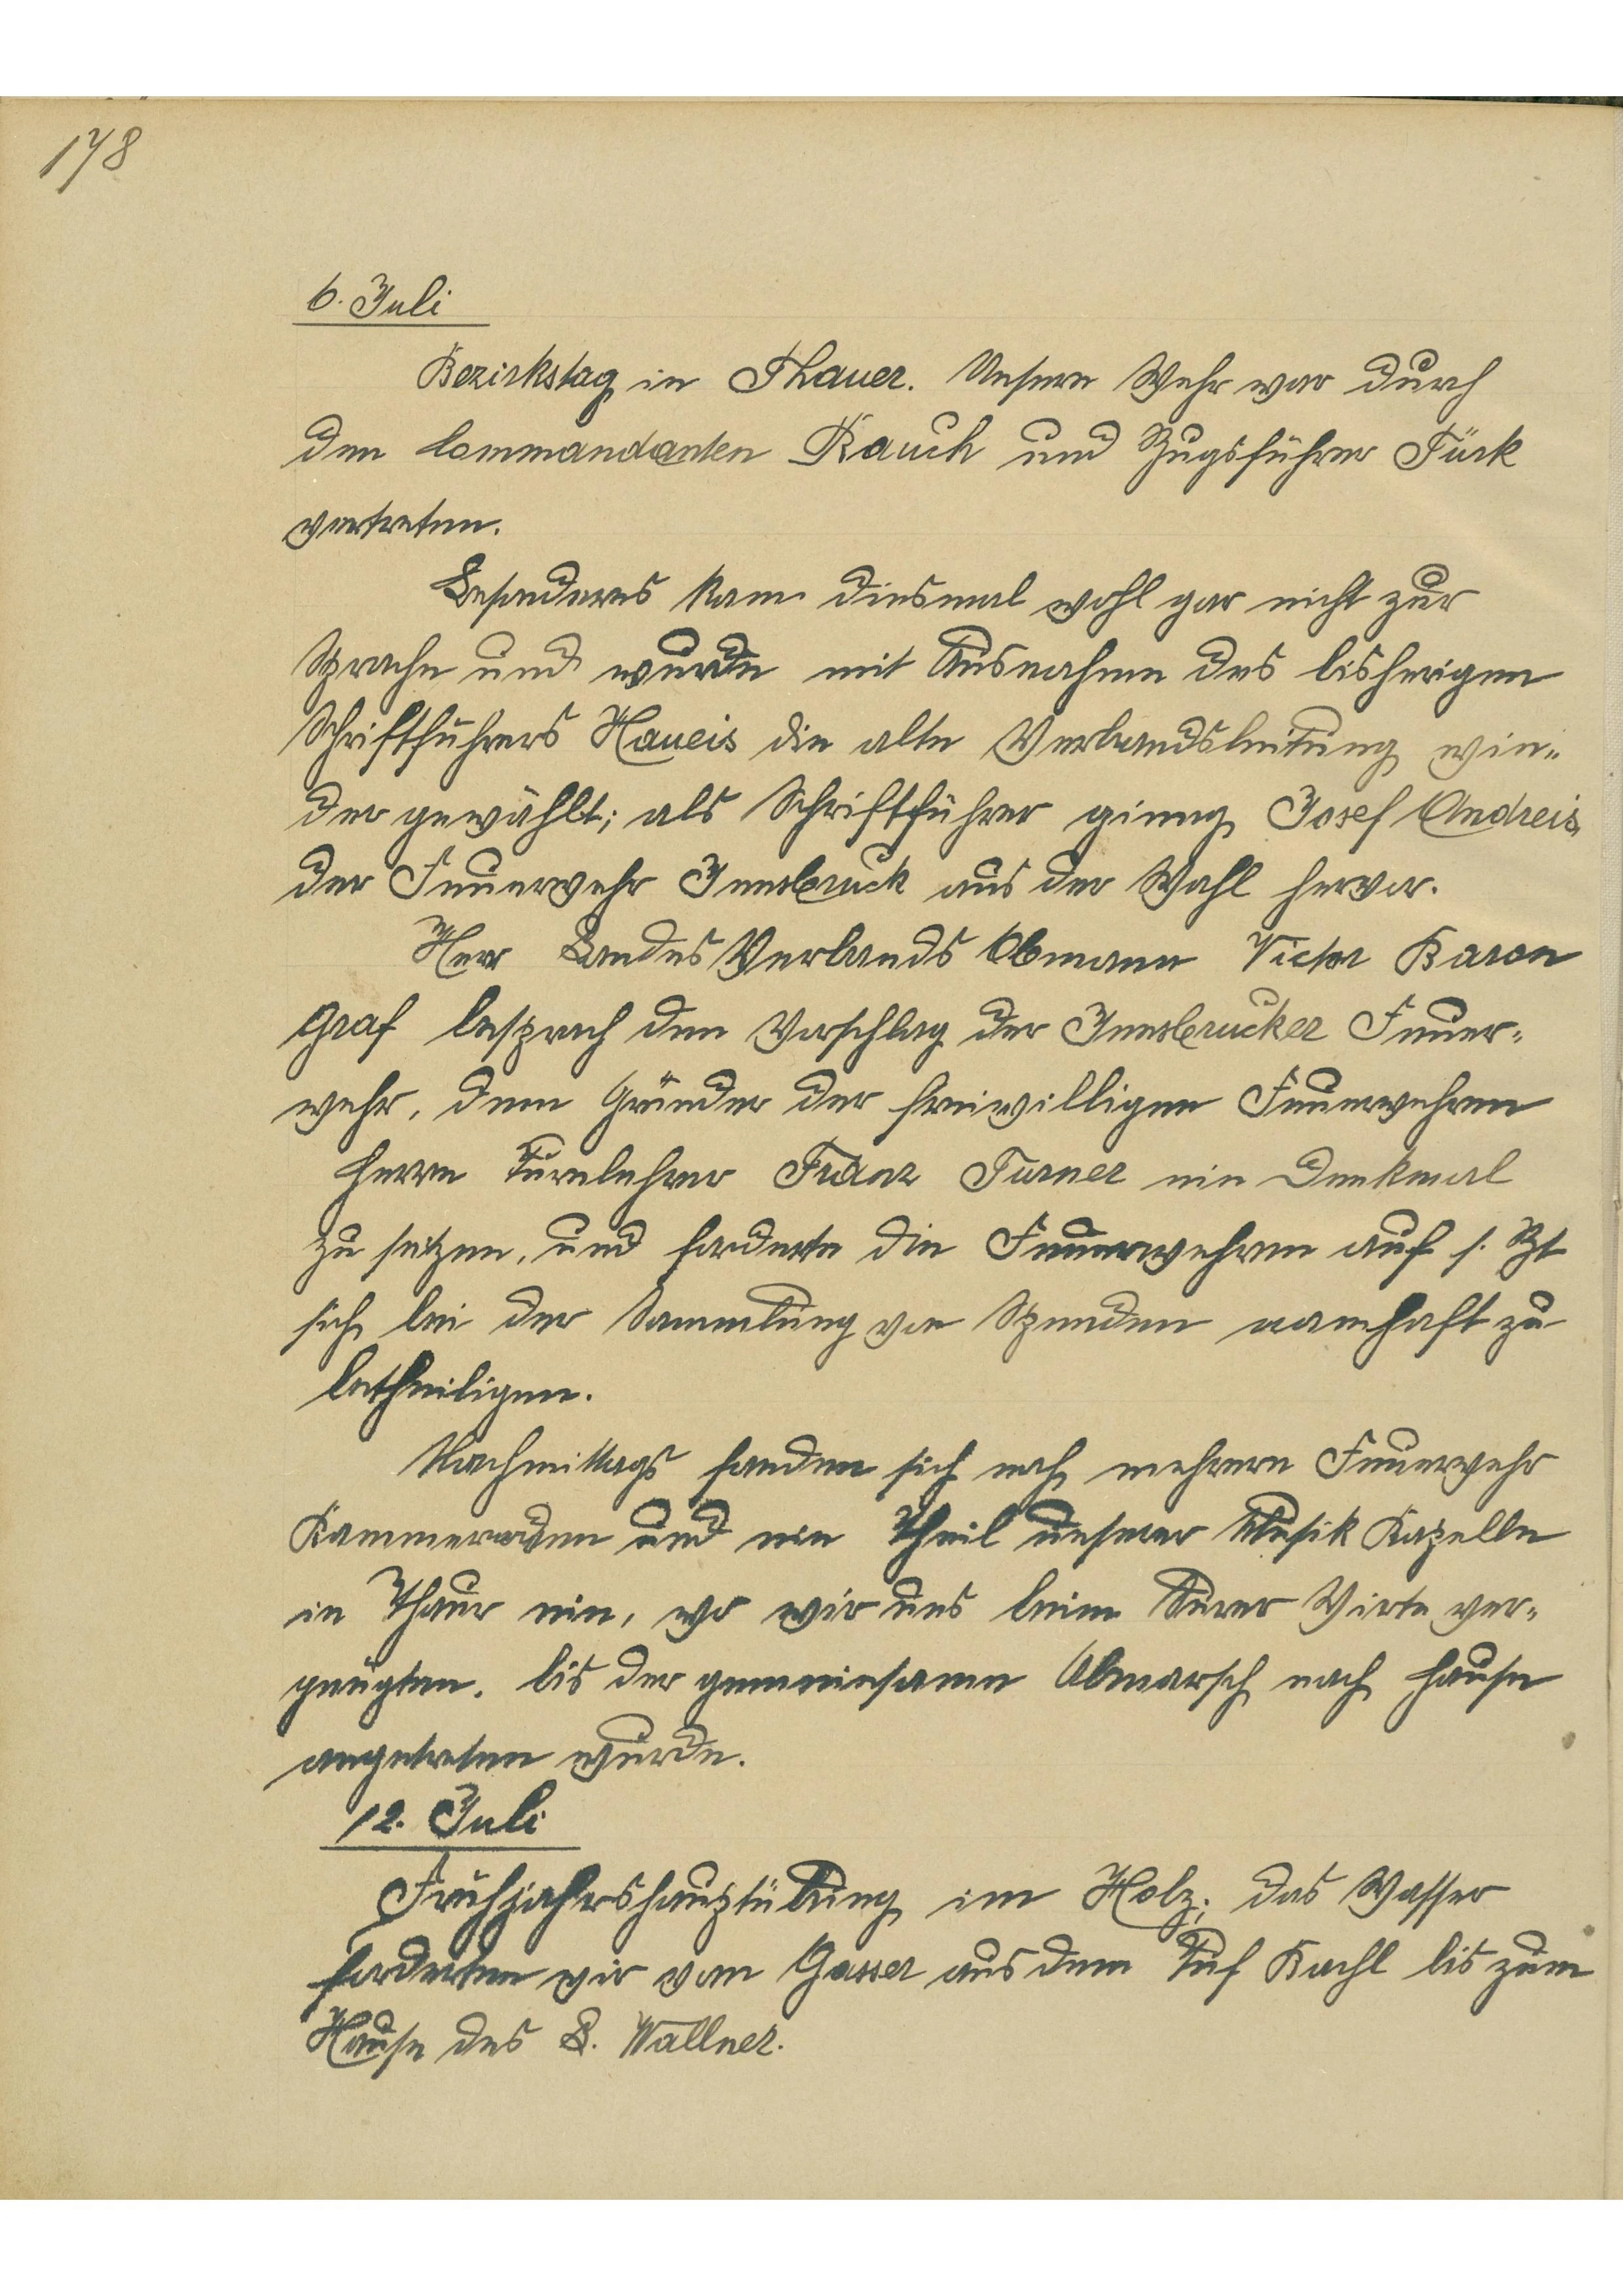 178
6. Juli
Bezirkstag in Thauer. Unsere Wehr war durch
den Commandanten Rauch und Zugsführer Türk
vertreten.
Besonderes kam diesmal wohl gar nicht zur
Sprache und wurde mit Ausnahme des bisherigen
Schriftführers Haueis die alte Verbandsleitung wie-
der gewählt; als Schriftführer gieng Josef Andreis
der Feuerwehr Innsbruck aus der Wahl hervor.
Herr Landes Verbands Obmann Victor Baron
Graf besprach den Vorschlag der Innsbrucker Feuer-
wehr, dem Gründer der freiwilligen Feuerwehren
Herrn Turnlehrer Franz Turner ein Denkmal
zu setzen, und forderte die Feuerwehren auf s. Zt
sich bei der Sammlung von Spenden namhaft zu
betheiligen.
Nachmittags fanden sich noch mehrere Feuerwehr
Kammeraden und ein Theil unserer Musik Kapelle
in Thaur ein, wo wir uns beim Purner Wirte ver-
gnügten, bis der gemeinsame Abmarsch nach Hause
angetreten wurde.
12. Juli
Frühjahrshauptübung im Holz; das Wasser
forderten wir vom Gasser aus dem Tuf Bachl bis zum
Hause des L. Wallner.